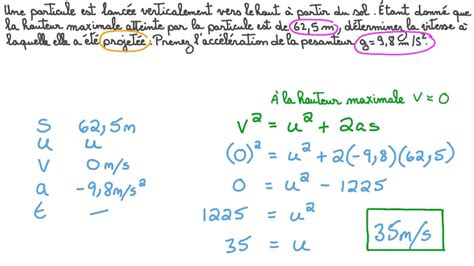 Une particule est lancée verticalement vers le haut à partir du sol. Étant donné que
la hauteur maximale atteinte par la particule est de 62,5 m, déterminez la vitesse à
laquelle elle a été projetée. Prenez l'accélération de la pesanteur g = 9,8 m/s².
À la hauteur maximale V = 0
S 62,5 m
u u
V 0 m/s
a -9,8 m/s²
t —
V² = u² + 2as
(0)² = u² + 2(-9,8)(62,5)
0 = u² - 1225
1225 = u²
35 = u
35 m/s